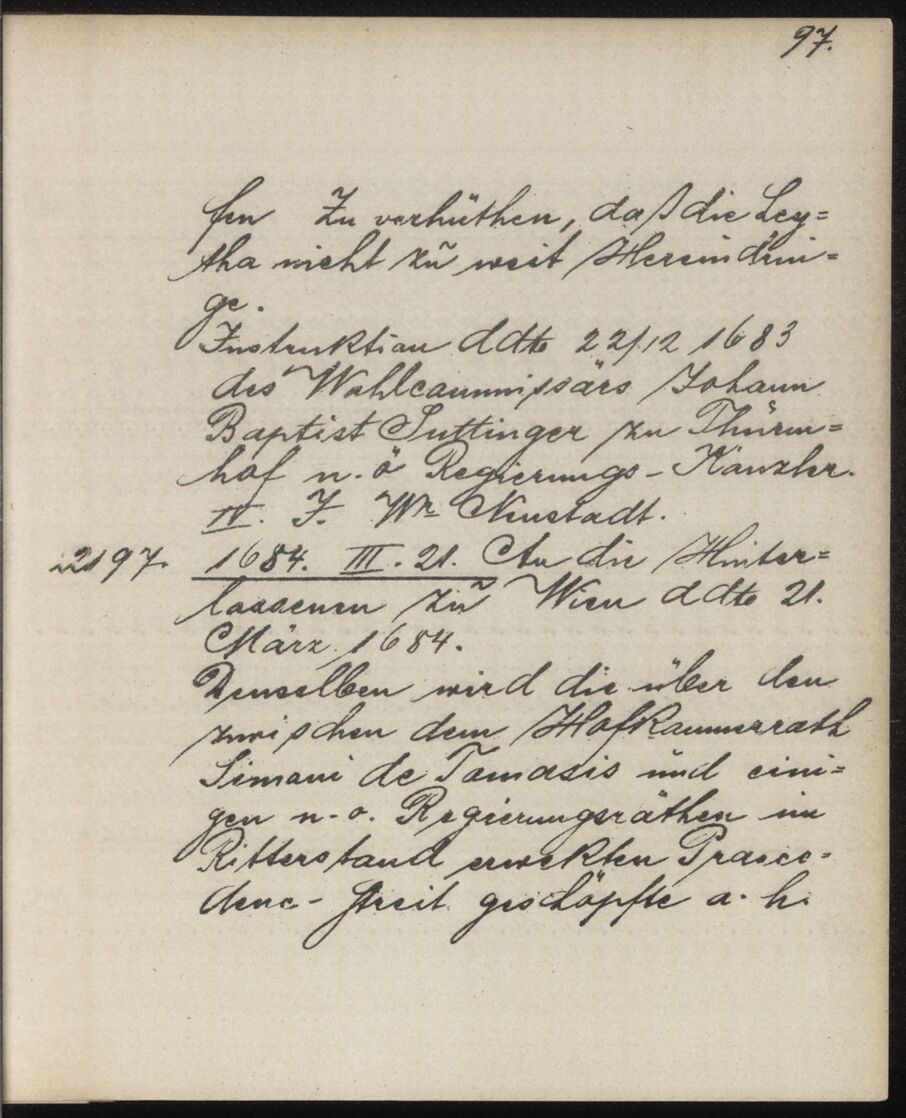 97.
fen Zu verhüthen, daß die Ley=
tha nicht zũ weit Hereindrin=
ge.
Instruktion ddto 22/12 1683
des Wahlcommissärs Johann
Baptist Suttinger zu Thürn=
hof n. ö Regierungs-Kanzler.
IV. F. Wr Neustadt.
2197. 1684. III. 21. An die Hinter=
lassenen zũ Wien ddto 21.
März 1684.
Denselben wird die über den
zwischen dem Hofkammerrath
Simoni de Tomasis und eini=
gen n.-o. Regierungsräthen im
Ritterstand erwekten Praece-
denc-streit geschöpfte a. h.